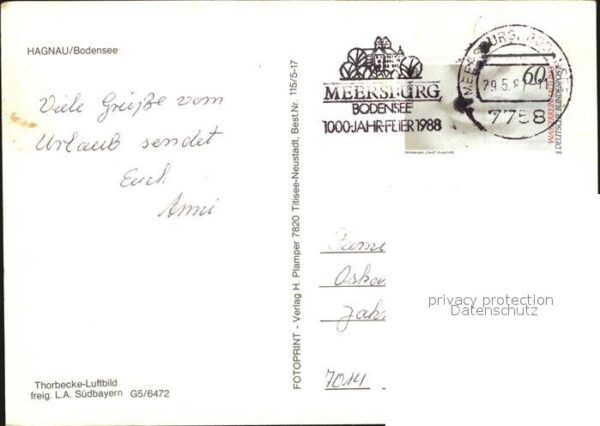 HAGNAU/Bodensee
Viele Grüße vom
Urlaub sendet
Euch
Anni
Thorbecke-Luftbild
freig. L.A. Südbayern G5/6472
FOTOPRINT - Verlag H. Plamper 7820 Titisee-Neustadt, Best.Nr. 115/5-17
MEERSBURG
BODENSEE
1000-JAHR-FEIER 1988
MEERSBURG, BODENSEE
29.5.8
7758
60
DEUTSCHE BUNDESPOST
Oskar
7014
privacy protection
Datenschutz